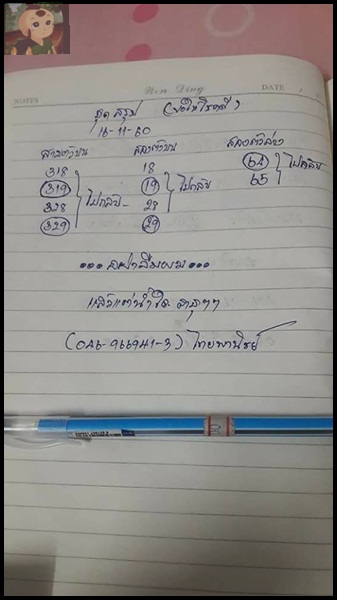 NOTES Hin Ding DATE / /
ชุด สรุป (ขอให้โชคดี)
16-11-60
สามตัวบน สองตัวบน สองตัวล่าง
318 18 64
319 19 65 ไม่กลับ
328 ไม่กลับ 28 ไม่กลับ
329 29
อย่าลืมผม
แล้วแต่น้ำใจ สาธุๆๆ
(046-966941-3) ไทยพาณิชย์